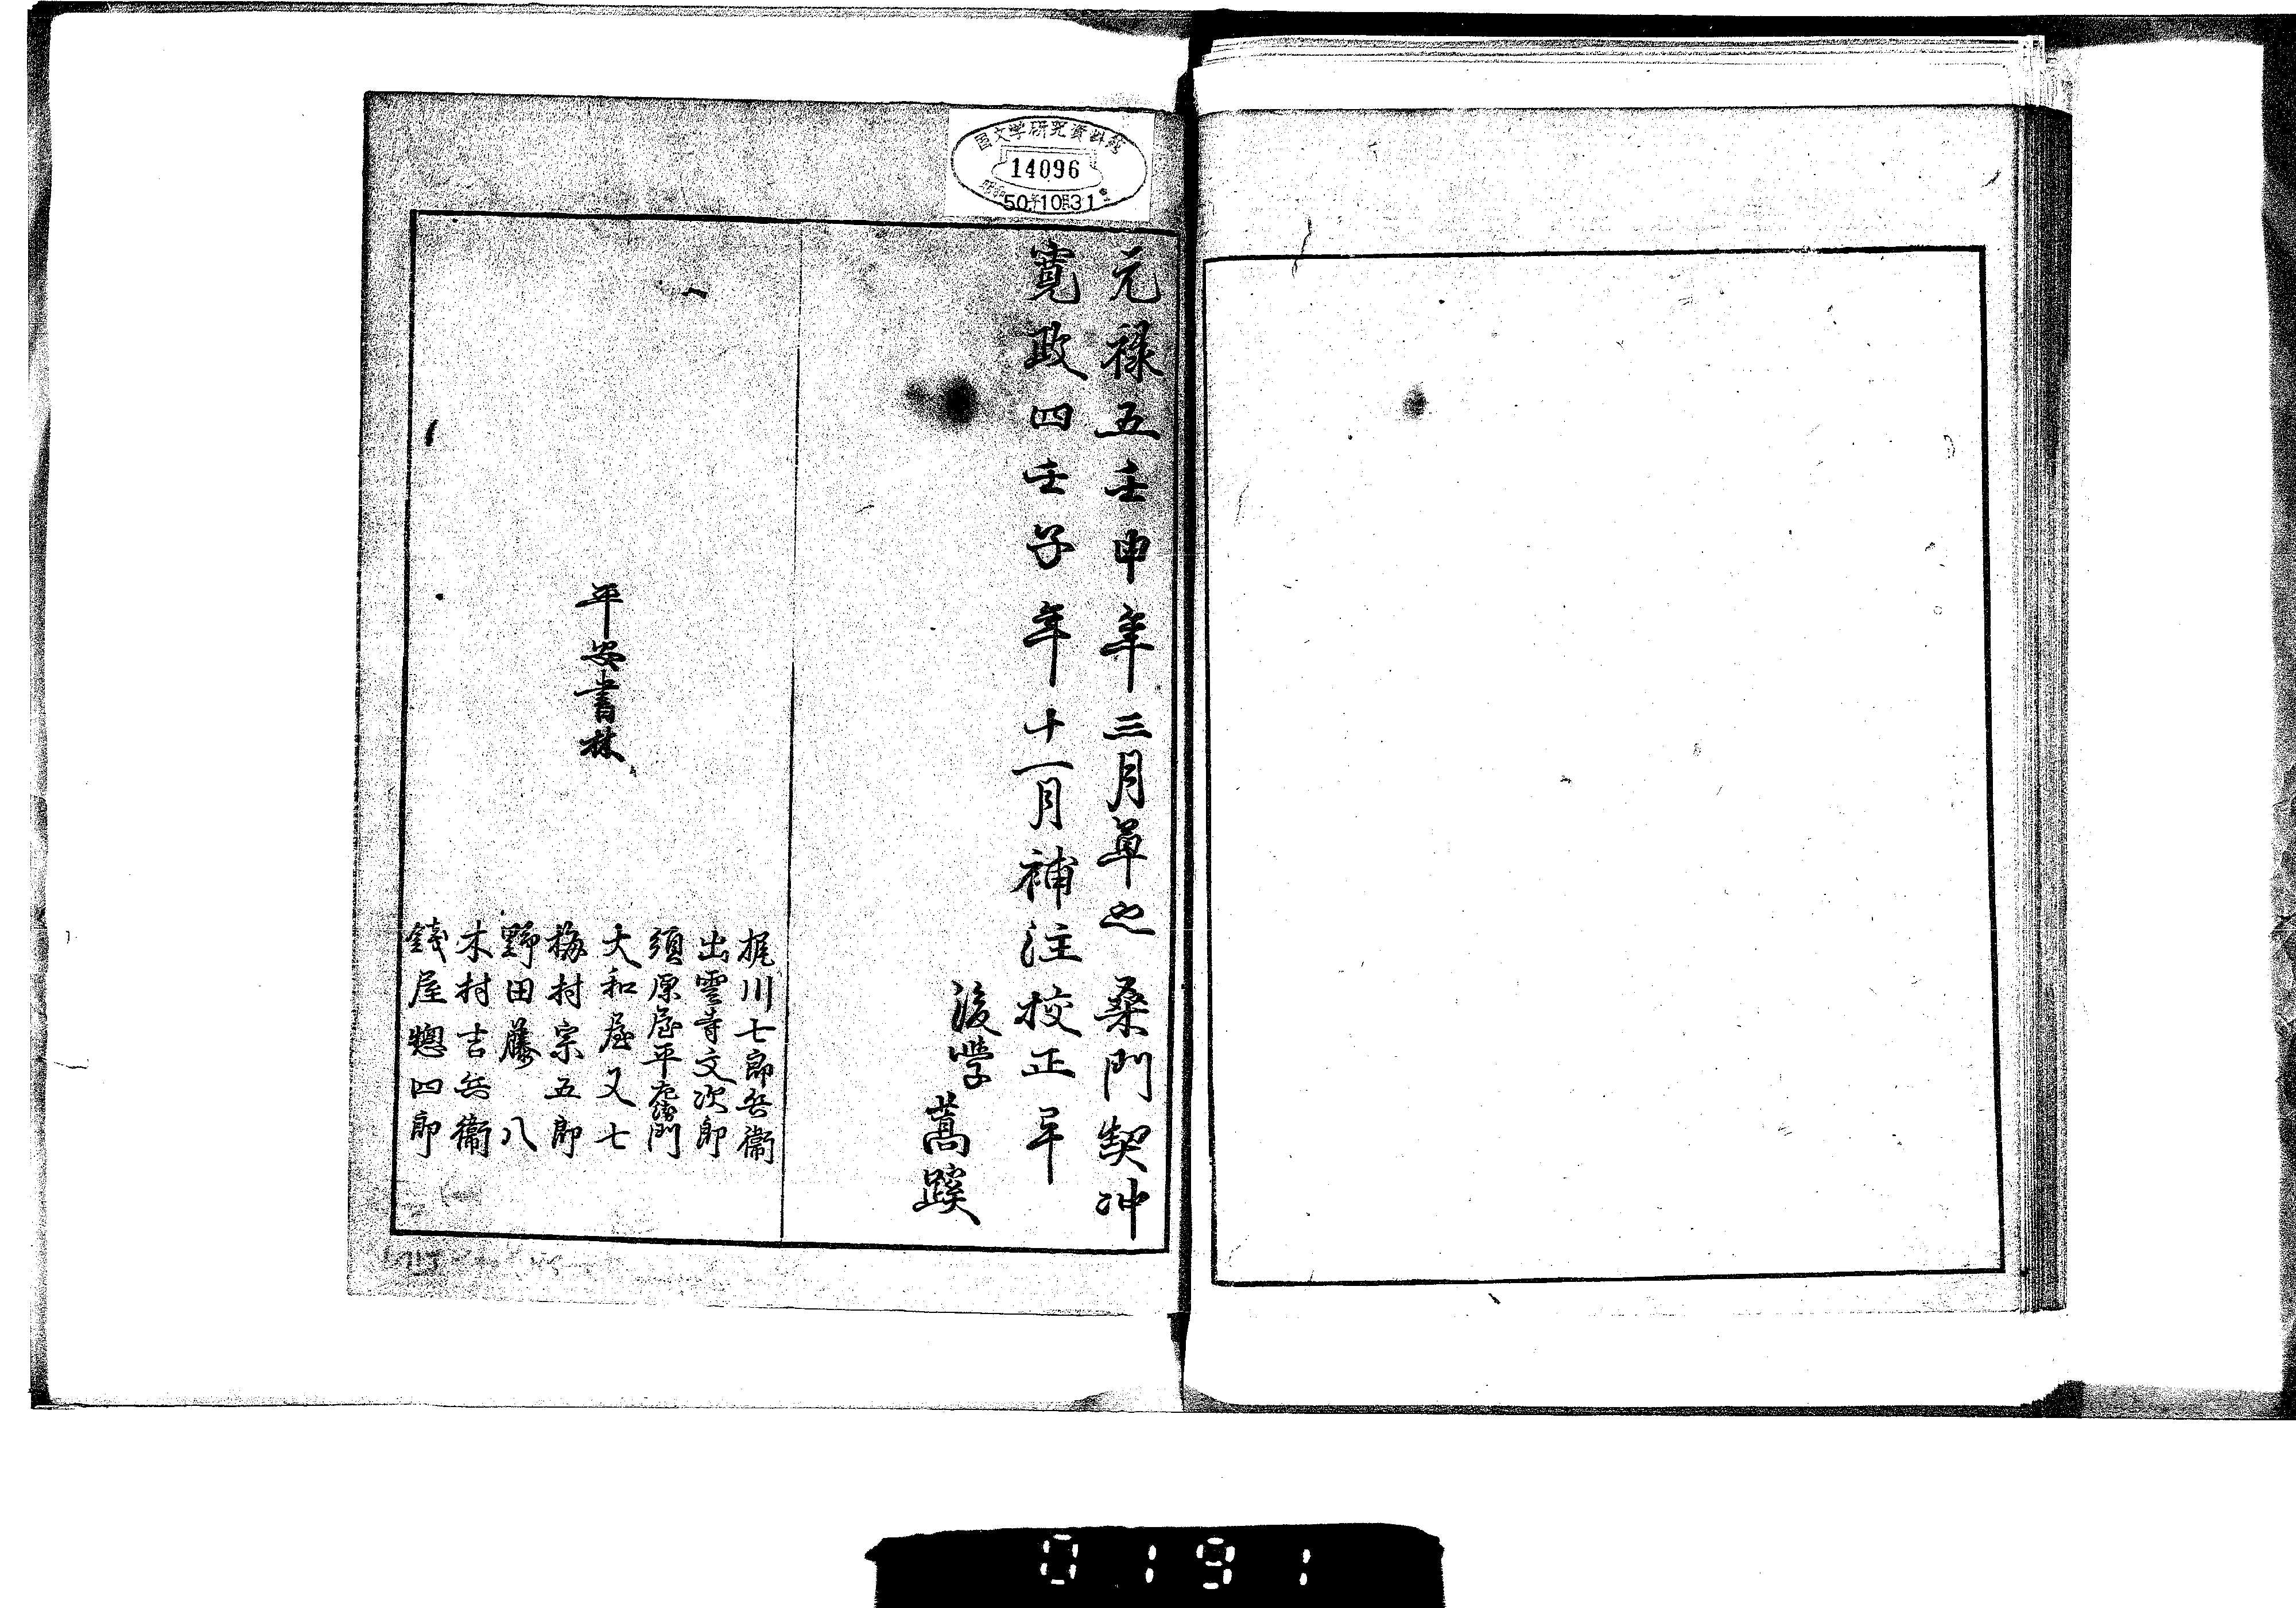 国文学研究資料館
14096
昭和50年10月31日
元禄五壬申年三月草之桑門契冲
寛政四壬子年十一月補注校正卒
後学蒿蹊
平安書林
梶川七郎兵衞
出雲寺文次郎
須原屋平左衛門
大和屋又七
梅村宗五郎
野田藤八
木村吉兵衞
錢屋惣四郎
0191